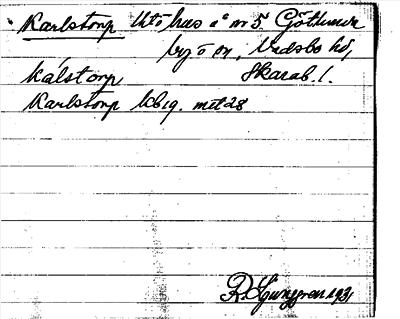 Karlstorp Uto hus å nr 5. Götlunda
by o sn, Vadsbo hd,
kålstorp Skarab. l.
Karlstorp kb 19. mtl 28
R. Ljunggren 1931